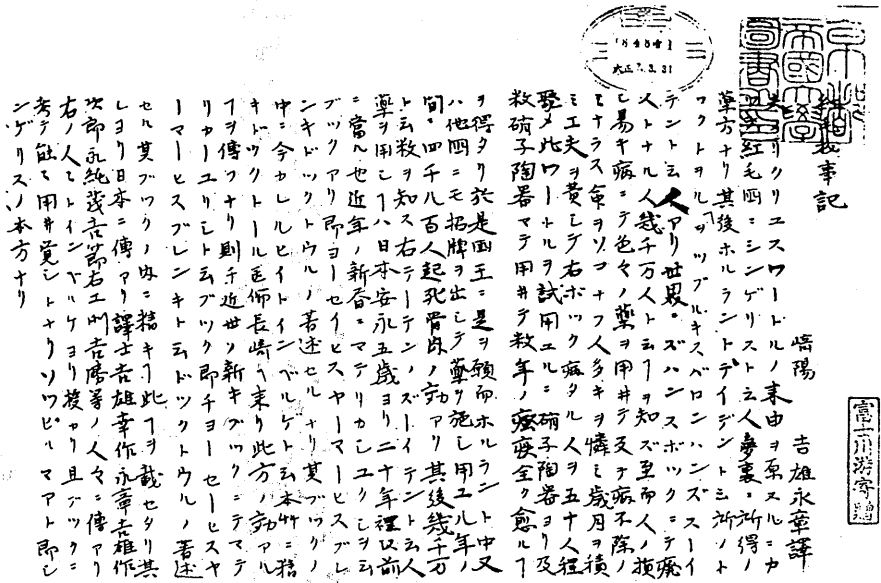 京都
帝國大學
圖書之印
184841
大正7.3.31
富士川游寄贈
紅毛秘事記
崎陽 吉雄永章譯
夫メリクリユスワートルノ来由ヲ原スルニカ
ツテ紅毛国ニシンゲリスト云人夢裏ニ所得ノ
薬方ナリ其後ホルラントデイデント云所ノト
ツクトヲル「ヲツプルキスベロンハンズスーイ
テント云人アリ世界ニズハンスボツクニテ癈
人トナル人幾千万人ト云フヿヲ知ズ至而人ノ損
シ易キ病ニテ色々ノ薬ヲ用井テ及テ病不除ノ
ミナラス命ヲソコナフ人多キヲ憐ミ歳月ヲ積
ミ工夫ヲ費シテ右ボツク病タル人ヲ五十人程
聚メ此ワートルヲ試用ユルニ硝子陶器ヨリ及
数硝子陶器マテ用井テ数年ノ癈疾全ク愈ルヿ
ヲ得タリ於是国王ニ是ヲ願而ホルラント中又
ハ他国ニモ招牌ヲ出シテ薬ヲ施シ用ユル年ノ
間ニ四千八百人起死骨肉ノ効アリ其後幾千万
ト云数ヲ知ス右テーテンノズーイテント云人
薬ヲ用シヿハ日本安永五歳ヨリ二十年程以前
ニ當ル也近年ノ新書ニマテリカシユクリシヲ云
ブツクアリ即ヨーセイヒスヤーマーヒスブレ
ンキドツクトウルノ著述セルナリ其ブツクノ
中ニ今カレルヒイトインベルゲト云本竹ニ精
キドツクトール医師長崎ヘ来リ此方ノ効アル
ヿヲ傳フナリ則チ近世ノ新キブツクニテマテ
リカーユリシト云ブツク即チヨーセーヒスヤ
ーマーヒスブレンキト云ドツクトウルノ著述
セル其ブツクノ内ニ精キヿ此ヿヲ載セタリ其
レヨリ日本ニ傳アリ譯士吉雄幸作永章吉雄作
次郎永純茂吉節右エ門吉勝等ノ人々ニ傳アリ
右ノ人ミトインベルゲヨリ授カリ且ブツクニ
考テ能ク用井覚シトナリソツピルマアト即シ
ンゲリスノ本方ナリ